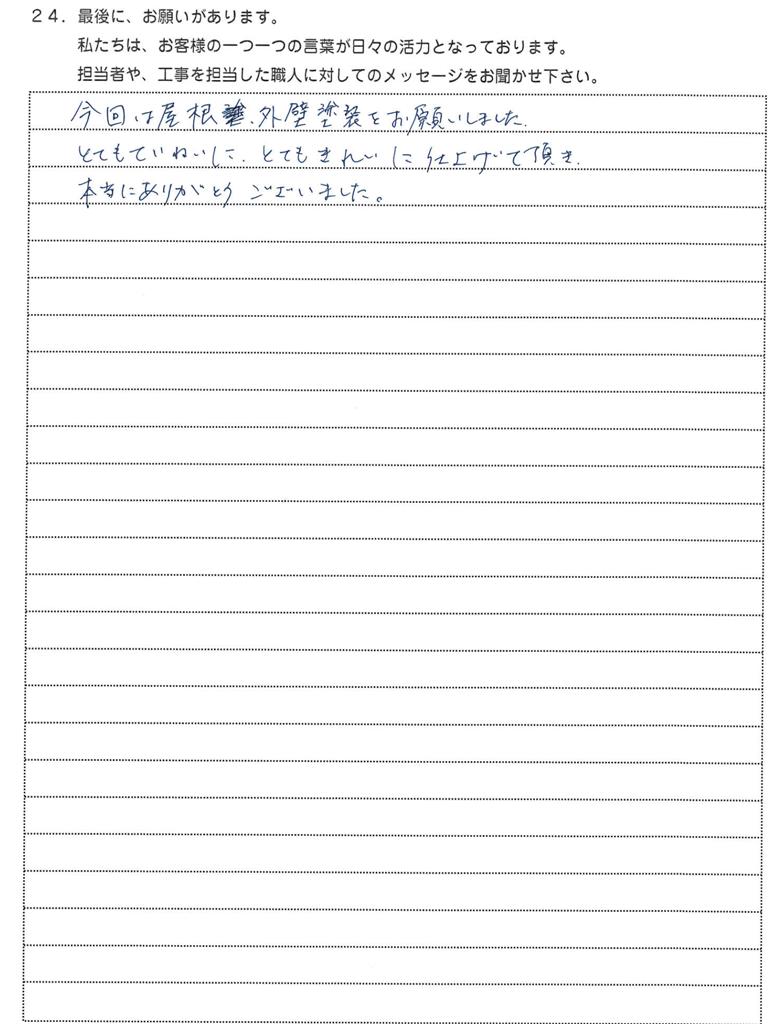 ２４．最後に、お願いがあります。
私たちは、お客様の一つ一つの言葉が日々の活力となっております。
担当者や、工事を担当した職人に対してのメッセージをお聞かせ下さい。
今回は屋根、外壁塗装をお願いしました.
とてもていねいに、とてもきれいに仕上げて頂き、
本当にありがとうございました。